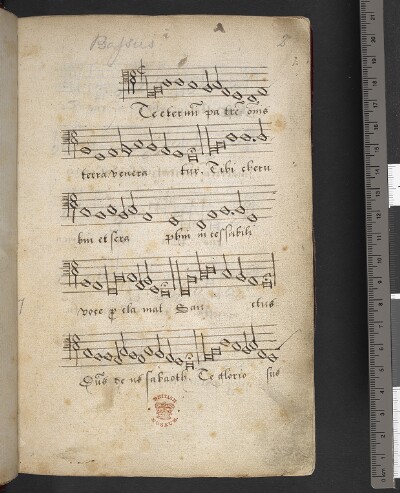 Bassus
A
2
Te eternū patrē oīs
terra venera tur. Tibi cheru
bin et sera phin in cessabili
voce p cla mat. San ctus
Dn̄s de us sabaoth. Te glorio sus